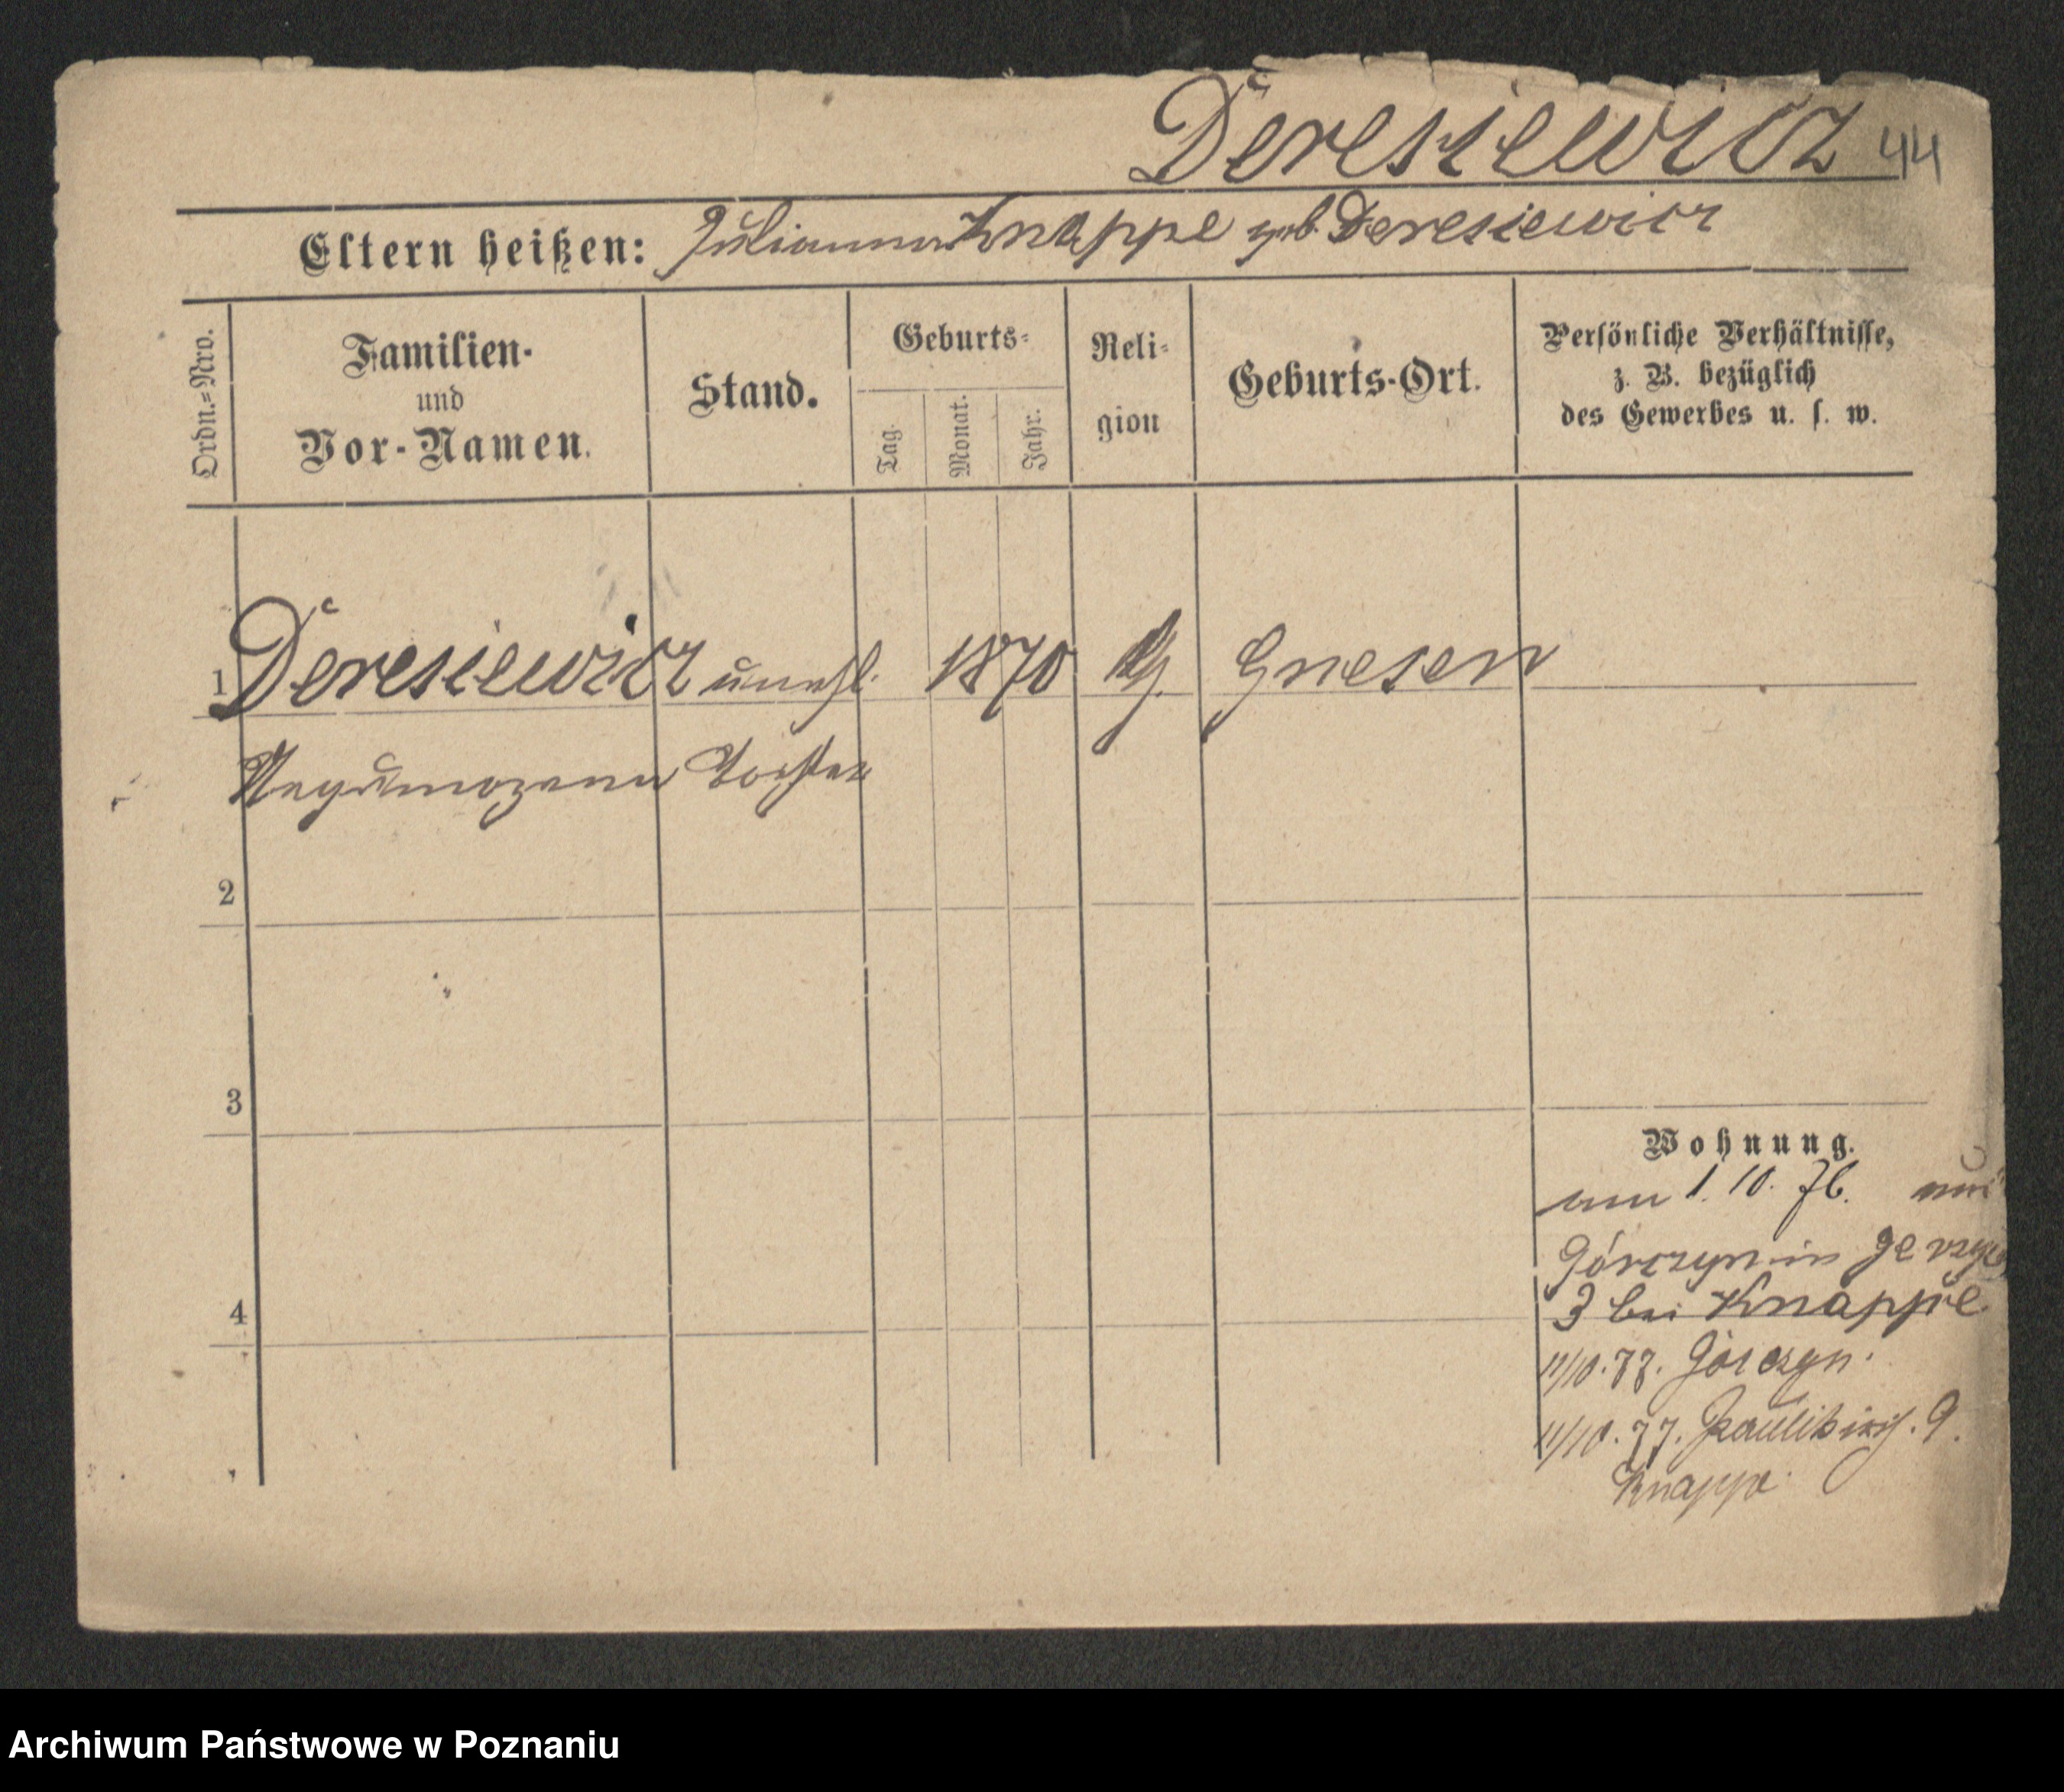 Deresiewicz 44
Eltern heißen: Julianna Knappe geb. Deresiewicz
Ordn.=Nro.
Familien-
und
Vor-Namen.
Stand.
Geburts=
Tag.
Monat.
Jahr.
Reli=
gion
Geburts-Ort.
Persönliche Verhältnisse,
z. B. bezüglich
des Gewerbes u. s. w.
1 Deresiewicz unehl. 1870 Gnesen
Tochter
2
3
4
Wohnung.
1. 10. 76.
Górczyn in
3 bei Knappe
11/10. 77. Górczyn.
11/10. 77. Paulikirch. 9.
Knappe.
Archiwum Państwowe w Poznaniu